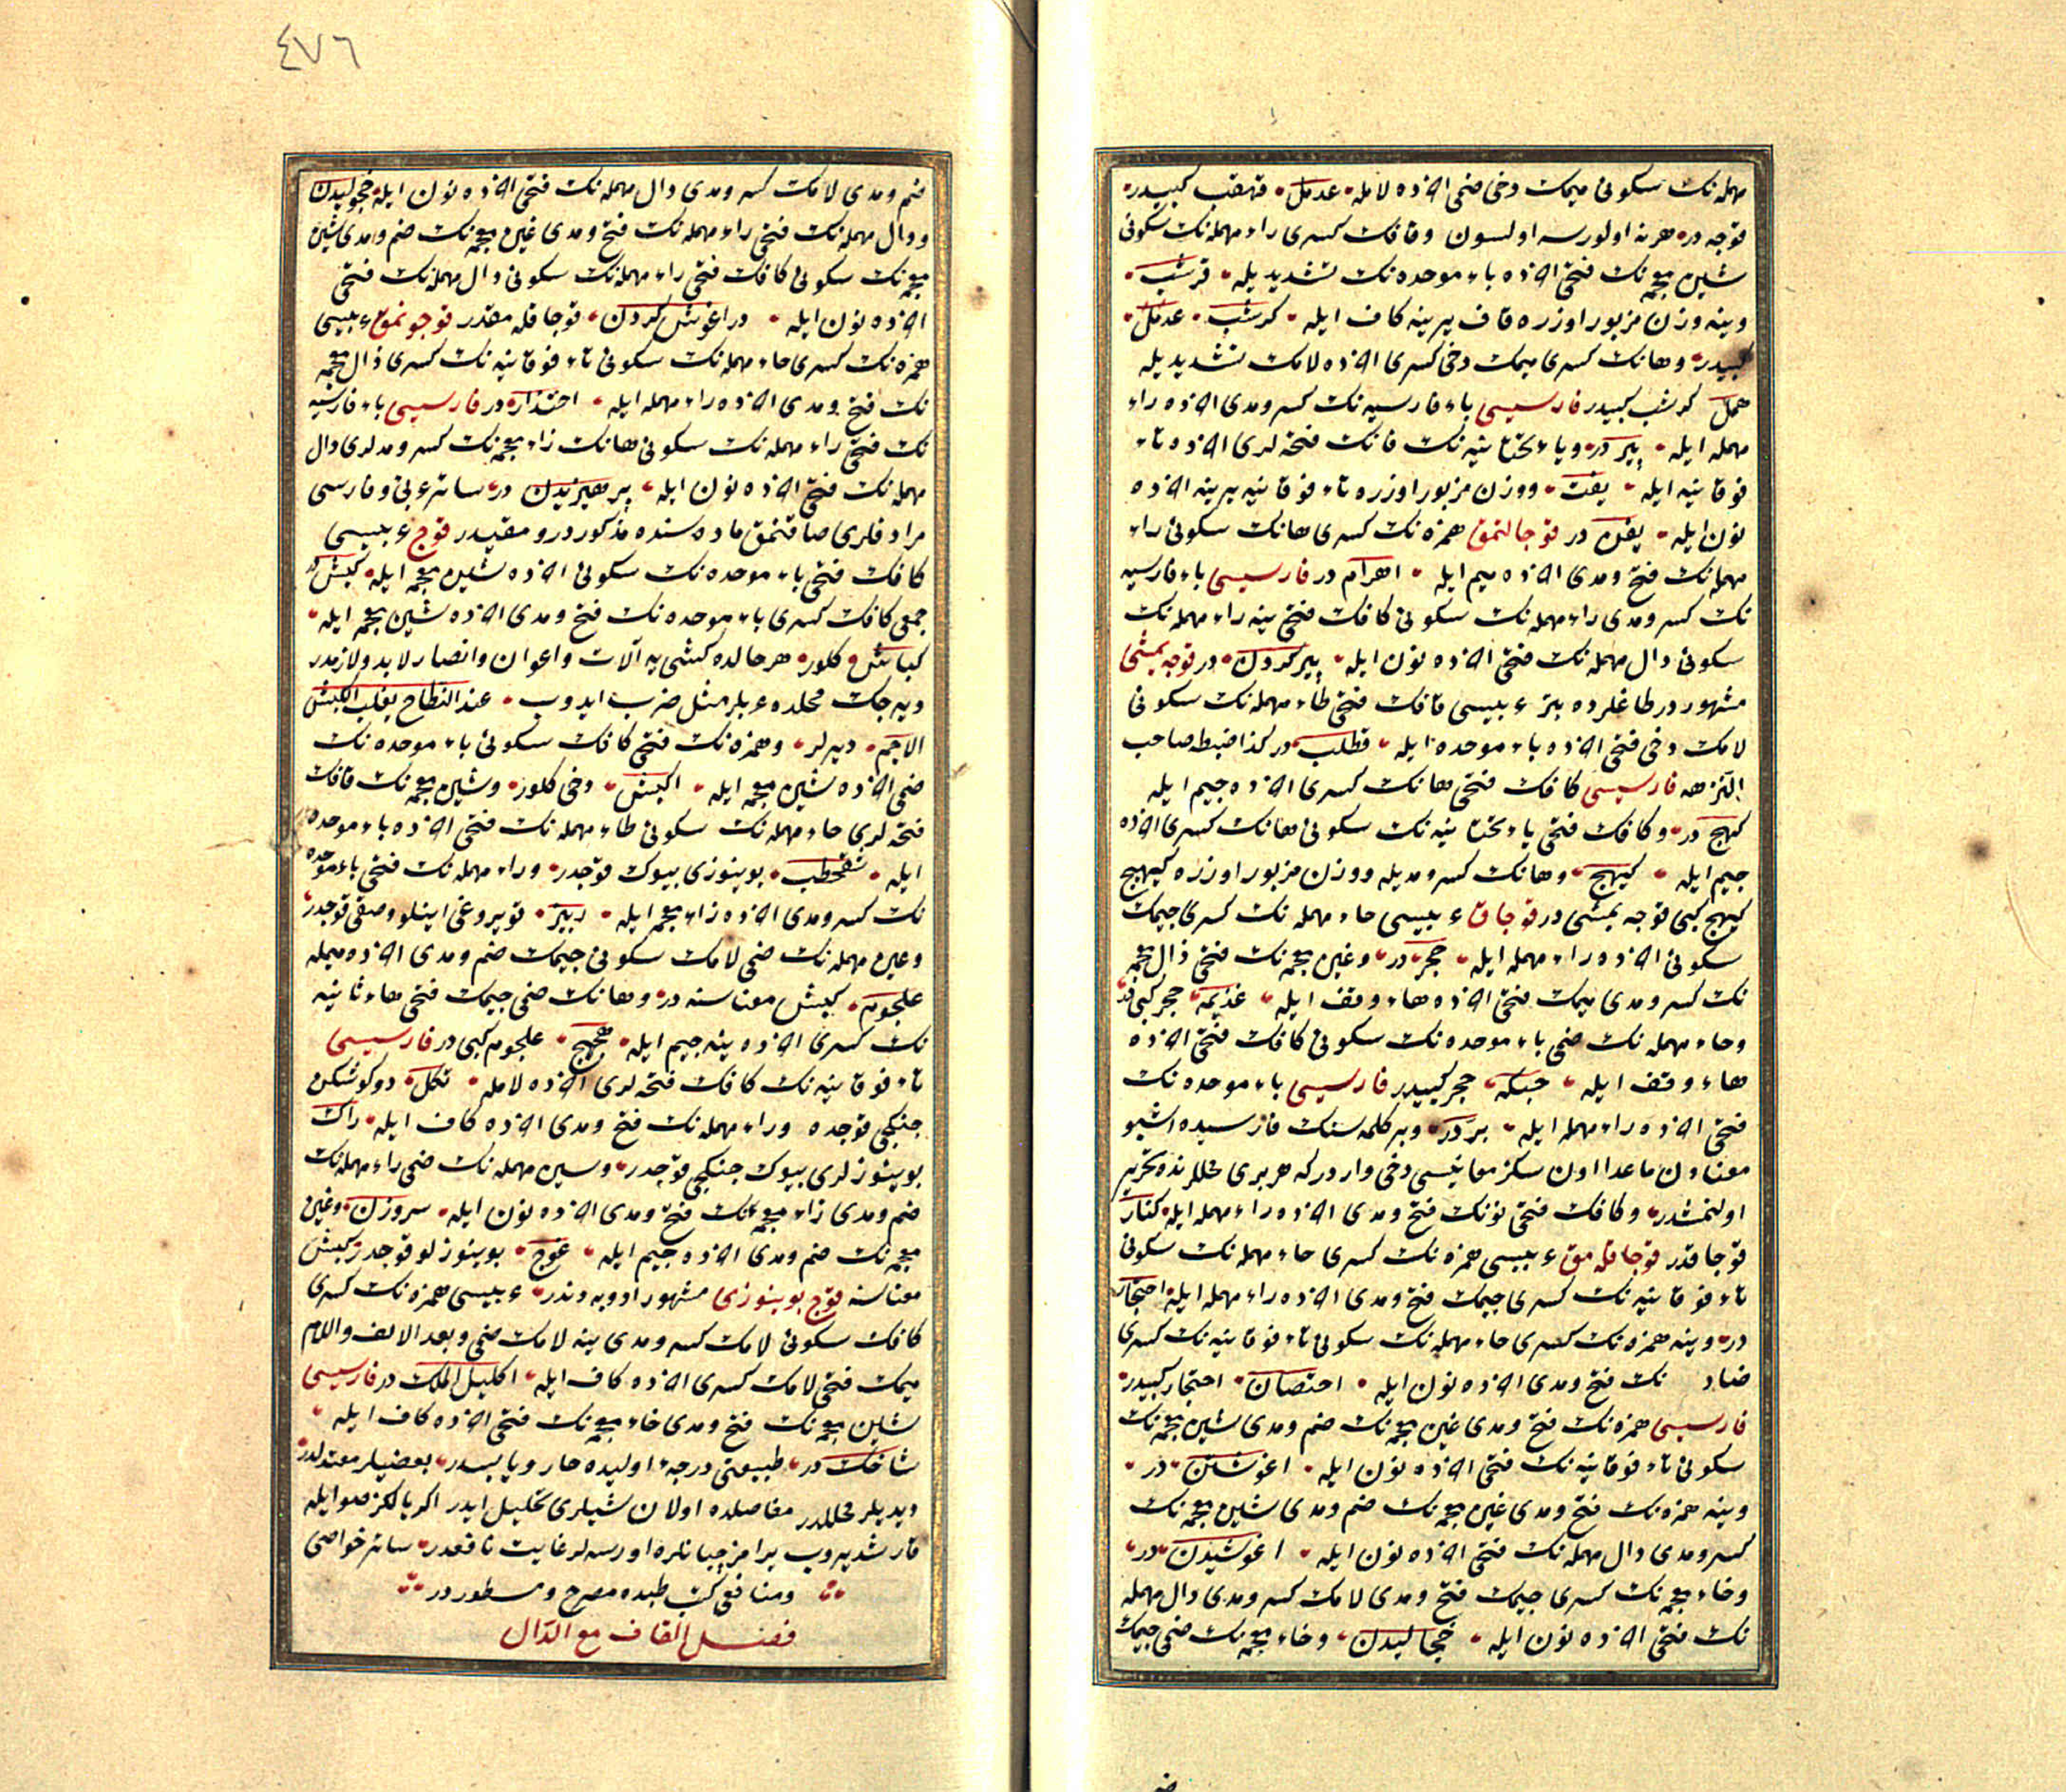 مهمله‌نك سكونى ميمك دخى ضمى اخرنده لامله عدمل قهقب كبيدر
قوجه در هرنه اولورسه اولسون وقافك كسرى راء مهمله‌نك سكونى
شين معجمه‌نك فتحى اخرنده باء موحده‌نك تشديديله قرشب
وينه وزن مزبور اوزره قاف يرينه كاف ايله كرشب عدمل
كبيدر وهانك كسرى ميمك دخى كسرى اخرنده لامك تشديديله
همل كرشب كبيدر فارسيسى باء فارسيه‌نك كسر ومدى اخرنده راء
مهمله ايله پير در وياء تحتانيه‌نك فانك فتحه‌لرى اخرنده تاء
فوقانيه ايله يفت ووزن مزبور اوزره تاء فوقانيه يرينه اخرنده
نون ايله يفن در قوجالتمق همزه‌نك كسرى هانك سكونى راء
مهمله‌نك فتح ومدى اخرنده ميم ايله اهرام در فارسيسى باء فارسيه
نك كسر ومدى راء مهمله‌نك سكونى كافك فتحى ينه راء مهمله‌نك
سكونى دال مهمله‌نك فتحى اخرنده نون ايله پير كردن در قوجه يمشى
مشهور در طاغلرده بتر عربيسى قافك فتحى طاء مهمله‌نك سكونى
لامك دخى فتحى اخرنده باء موحده ايله قطلب در كذا ضبطه صاحب
النزهه فارسيسى كافك فتحى هانك كسرى اخرنده جيم ايله
كهج در وكافك فتحى ياء تحتانيه‌نك سكونى هانك كسرى اخرنده
جيم ايله كيهج وهانك كسر ومديله ووزن مزبور اوزره كيهيج
كيهج كبى قوجه يمشى در قوجاق عربيسى حاء مهمله‌نك كسرى جيمك
سكونى اخرنده راء مهمله ايله حجر در وغين معجمه‌نك فتحى ذال معجمه
نك كسر ومدى ميمك فتحى اخرنده هاء وقف ايله غذيمه حجر كبى در
وحاء مهمله‌نك ضمى باء موحده‌نك سكونى كافك فتحى اخرنده
هاء وقف ايله حبكه حجر كبيدر فارسيسى باء موحده‌نك
فتحى اخرنده راء مهمله ايله بر در وبر كلمه‌سنك فارسيده اشبو
معنادن ماعدا اون سكز معانيسى دخى واردركه هر برى محللرنده تحرير
اولنمشدر وكافك فتحى نونك فتح ومدى اخرنده راء مهمله ايله كنار
قوجاقدر قوجاقلمق عربيسى همزه‌نك كسرى حاء مهمله‌نك سكونى
تاء فوقانيه‌نك كسرى جيمك فتح ومدى اخرنده راء مهمله ايله احتجار
در وينه همزه‌نك كسرى حاء مهمله‌نك سكونى تاء فوقانيه‌نك كسرى
ضاد نك فتح ومدى اخرنده نون ايله احتضان احتجار كبيدر
فارسيسى همزه‌نك فتح ومدى غين معجمه‌نك ضم ومدى شين معجمه‌نك
سكونى تاء فوقانيه‌نك فتحى اخرنده نون ايله اغوشتن در
وينه همزه‌نك فتح ومدى غين معجمه‌نك ضم ومدى شين معجمه‌نك
كسر ومدى دال مهمله‌نك فتحى اخرنده نون ايله اغوشيدن در
وخاء معجمه‌نك كسرى جيمك فتح ومدى لامك كسر ومدى دال مهمله
نك فتحى اخرنده نون ايله خجاليدن وخاء معجمه‌نك ضمى جيمك
٤٧٦
ضم ومدى لامك كسر ومدى دال مهمله‌نك فتحى اخرنده نون ايله خجوليدن
ودال مهمله‌نك فتحى راء مهمله‌نك فتح ومدى غين معجمه‌نك ضم ومدى شين
معجمه‌نك سكونى كافك فتحى راء مهمله‌نك سكونى دال مهمله‌نك فتحى
اخرنده نون ايله دراغوش كردن قوجاقلمقدر قوجونمق عربيسى
همزه‌نك كسرى حاء مهمله‌نك سكونى تاء فوقانيه‌نك كسرى ذال معجمه
نك فتح ومدى اخرنده راء مهمله ايله احتذار در فارسيسى باء فارسيه
نك فتحى راء مهمله‌نك سكونى هانك زاء معجمه‌نك كسر ومدلرى دال
مهمله‌نك فتحى اخرنده نون ايله پرهيزيدن در سائر عربى وفارسى
مرادفلرى صاقنمق ماده‌سنده مذكور در ومقيددر قوج عربيسى
كافك فتحى باء موحده‌نك سكونى اخرنده شين معجمه ايله كبش در
جمعى كافك كسرى باء موحده‌نك فتح ومدى اخرنده شين معجمه ايله
كباش كلور هر حالده كشى يه آلات واعوان وانصار لابد ولازمدر
ديه‌جك محلده عربلر مثل ضرب ايدوب عند النطاح يغلب الكبش
الاجم ديرلر وهمزه‌نك فتحى كافك سكونى باء موحده‌نك
ضمى اخرنده شين معجمه ايله اكبش دخى كلور وشين معجمه‌نك قافك
فتحه‌لرى حاء مهمله‌نك سكونى طاء مهمله‌نك فتحى اخرنده باء موحده
ايله شقحطب بوينوزى بيوك قوجدر وراء مهمله‌نك فتحى باء موحده
نك كسر ومدى اخرنده زاء معجمه ايله ربيز قويروغى اينلو وصقى قوجدر
وعين مهمله‌نك ضمى لامك سكونى جيمك ضم ومدى اخرنده ميمله
علجوم كبش معناسنه در وهانك ضمى جيمك فتحى هاء ثانيه
نك كسرى اخرنده ينه جيم ايله هجهج علجوم كبى در فارسيسى
تاء فوقانيه‌نك كافك فتحه‌لرى اخرنده لامله تكل دوكوشكن
جنكجى قوجده وراء مهمله‌نك فتح ومدى اخرنده كاف ايله راك
بوينوزلرى بيوك جنكجى قوجدر وسين مهمله‌نك ضمى راء مهمله‌نك
ضم ومدى زاء معجمه‌نك فتح ومدى اخرنده نون ايله سروزن وغين
معجمه‌نك ضم ومدى اخرنده جيم ايله غوج بوينوزلو قوجدر كبش
معناسنه قوج بوينوزى مشهور ادويه‌دندر عربيسى همزه‌نك كسرى
كافك سكونى لامك كسر ومدى ينه لامك ضمى وبعد الالف واللام
ميمك فتحى لامك كسرى اخرنده كاف ايله اكليل الملك در فارسيسى
شين معجمه‌نك فتح ومدى خاء معجمه‌نك فتحى اخرنده كاف ايله
شاخك در طبيعتى درجهٔ اوليده حار ويابسدر بعضيلر معتدلدر
ديديلر محللدر مفاصلده اولان شيلرى تحليل ايدر اكر يالكز صو ايله
قارشديروب برامز چبانلره اورسه‌لر غايت نافعدر سائر خواصى
ومنافعى كتب طبده مصرح ومسطور در
فصل القاف مع الدال